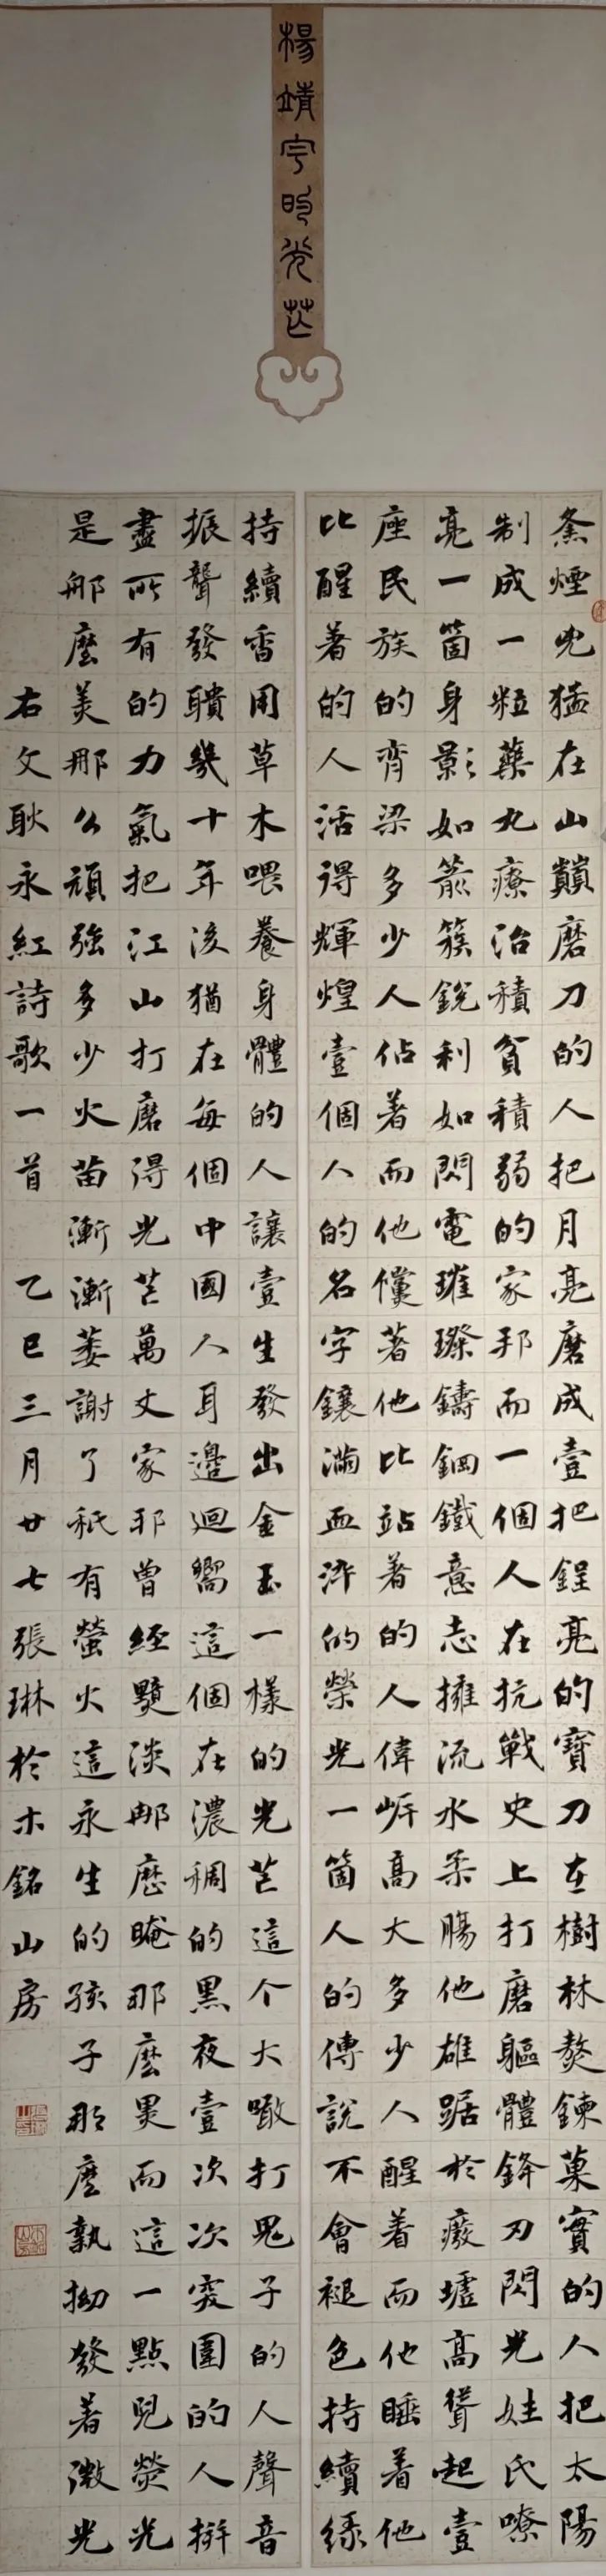 楊靖宇的光芒
夅煙兇猛在山巔磨刀的人把月亮磨成壹把鋥亮的寶刀在樹林熬鍊菓實的人把太陽
制成一粒藥丸療治積貧積弱的家邦而一個人在抗戰史上打磨軀體鋒刃閃光姓氏嘹
亮一箇身影如箭簇銳利如閃電璀璨鑄鋼鐵意志擁流水柔腸他雄踞於廢墟高聳起壹
座民族的脊梁多少人佔著而他儻著他比站著的人偉岸高大多少人醒着而他睡着他
比醒著的人活得輝煌壹個人的名字鑲滿血滸的榮光一箇人的傳說不會褪色持續綠
持續香用草木喂養身體的人讓壹生發出金玉一樣的光芒這个大噉打鬼子的人聲音
振聾發聵幾十年後猶在每個中國人耳邊迴嚮這個在濃稠的黑夜壹次次突圍的人拼
盡所有的力氣把江山打磨得光芒萬丈家邦曾經黯淡那麼晻那麼黑而這一點兒熒光
是那麼美那么頑強多少火苗漸漸萎謝了秖有螢火這永生的孩子那麼執拗發著微光
右文耿永紅詩歌一首 乙巳三月廿七張琳於木銘山房